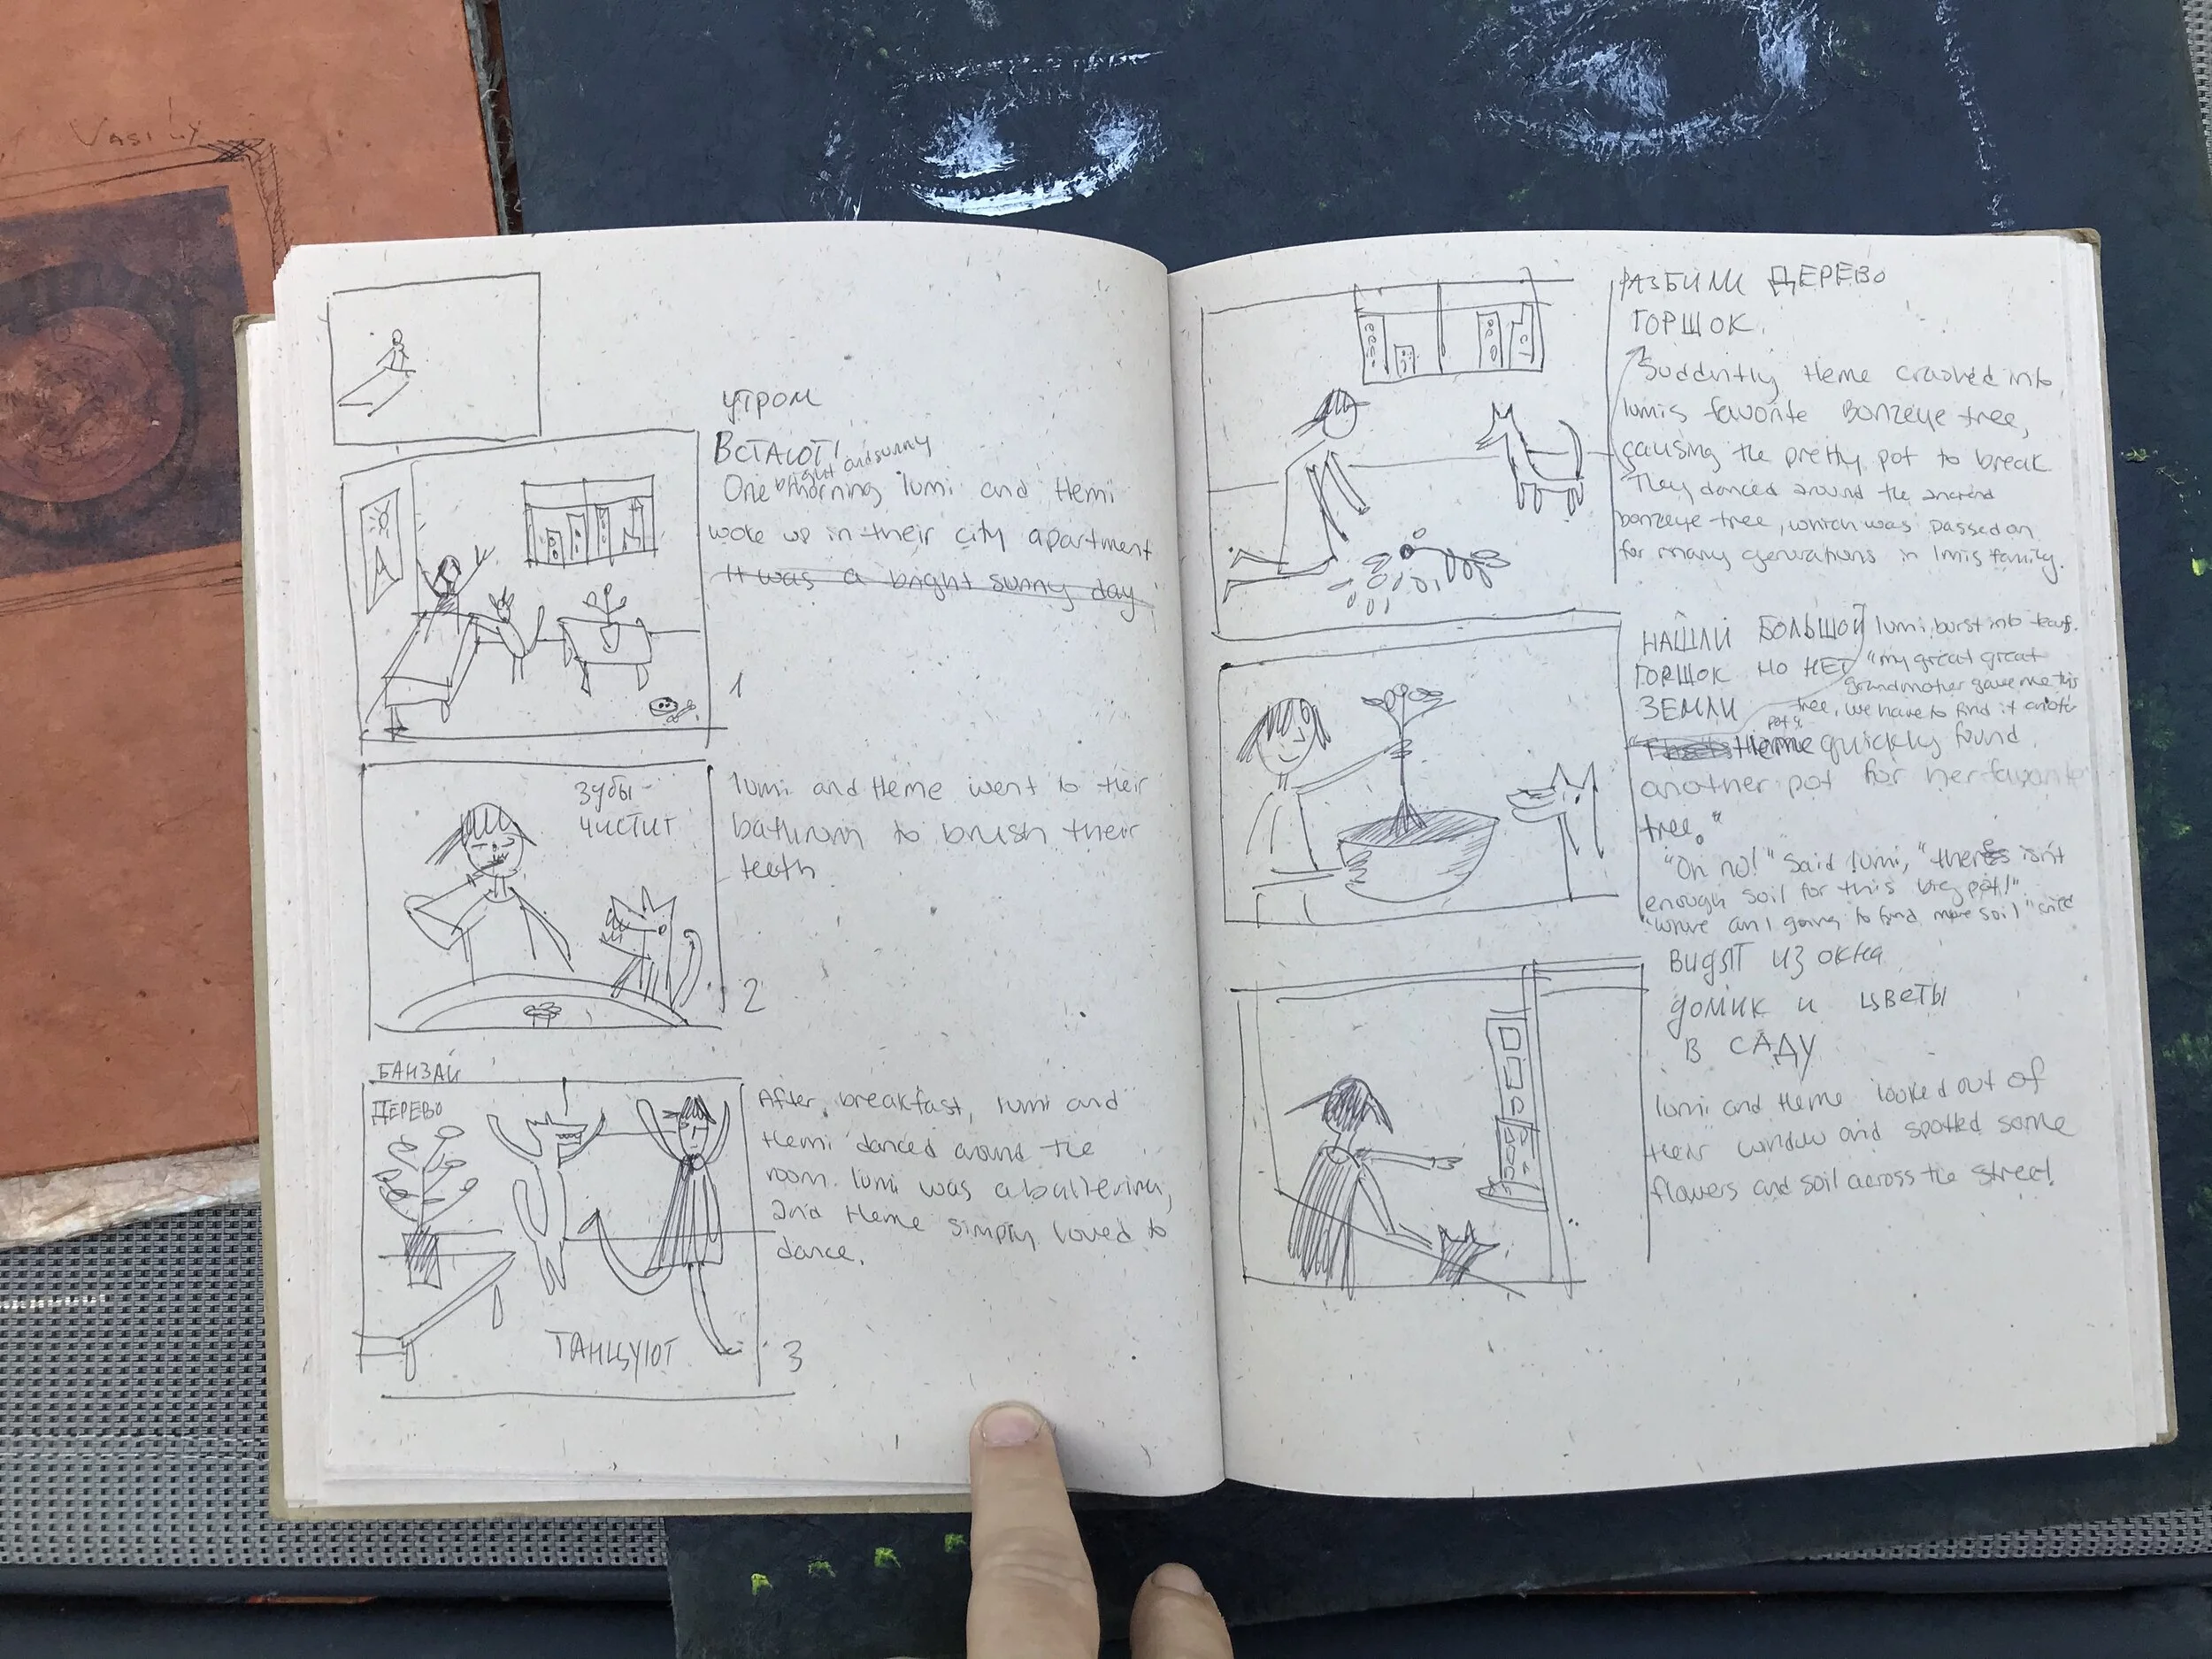 Vasiliy
УТРОМ
ВСТАЮТ!
bright and sunny
One morning lumi and Hemi
woke up in their city apartment
It was a bright sunny day
1
ЗУБЫ-
ЧИСТИТ
lumi and Heme went to their
bathrum to brush their
teeth
2
БАНЗАЙ
ДЕРЕВО
ТАНЦУЮТ
After breakfast, lumi and
Hemi danced around the
room. lumi was a ballerina,
and Heme simply loved to
dance.
3
РАЗБИЛИ ДЕРЕВО
ГОРШОК.
Suddently Heme crashed into
lumis favorite Bonzeye tree,
causing the pretty pot to break
They danced around the
bonzeye tree, which was passed on
for many generations in lmis family.
НАШЛИ БОЛЬШОЙ
ГОРШОК НО НЕТ
ЗЕМЛИ
lumi burst into tears.
"my great great
grandmother gave me this
tree, we have to find it
Heme quickly found
another pot for her favorite
tree."
"Oh no!" Said lumi, "there isn't
enough soil for this big pot!"
"Where am I going to find more soil"
ВИДЯТ ИЗ ОКНА
ДОМИК И ЦВЕТЫ
В САДУ
lumi and Heme looked out of
their window and spotted some
flowers and soil across the street.